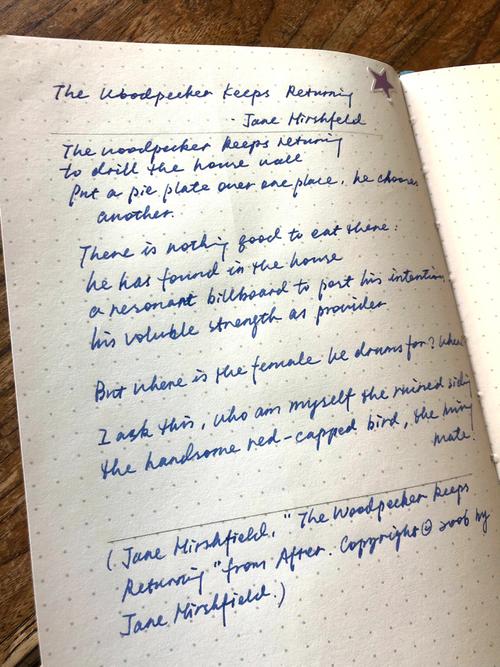 The Woodpecker Keeps Returning
- Jane Hirshfield
The woodpecker keeps returning
to drill the house wall
Put a pie plate over one place, he chooses
another.
There is nothing good to eat there:
he has found in the house
a resonant billboard to post his intention,
his voluble strength as provider
But where is the female he drums for? Where
I ask this, who am myself the ruined siding
the handsome red-capped bird, the missing
mate.
(Jane Hirshfield, "The Woodpecker Keeps
Returning" from After. Copyright © 2006 by
Jane Hirshfield.)